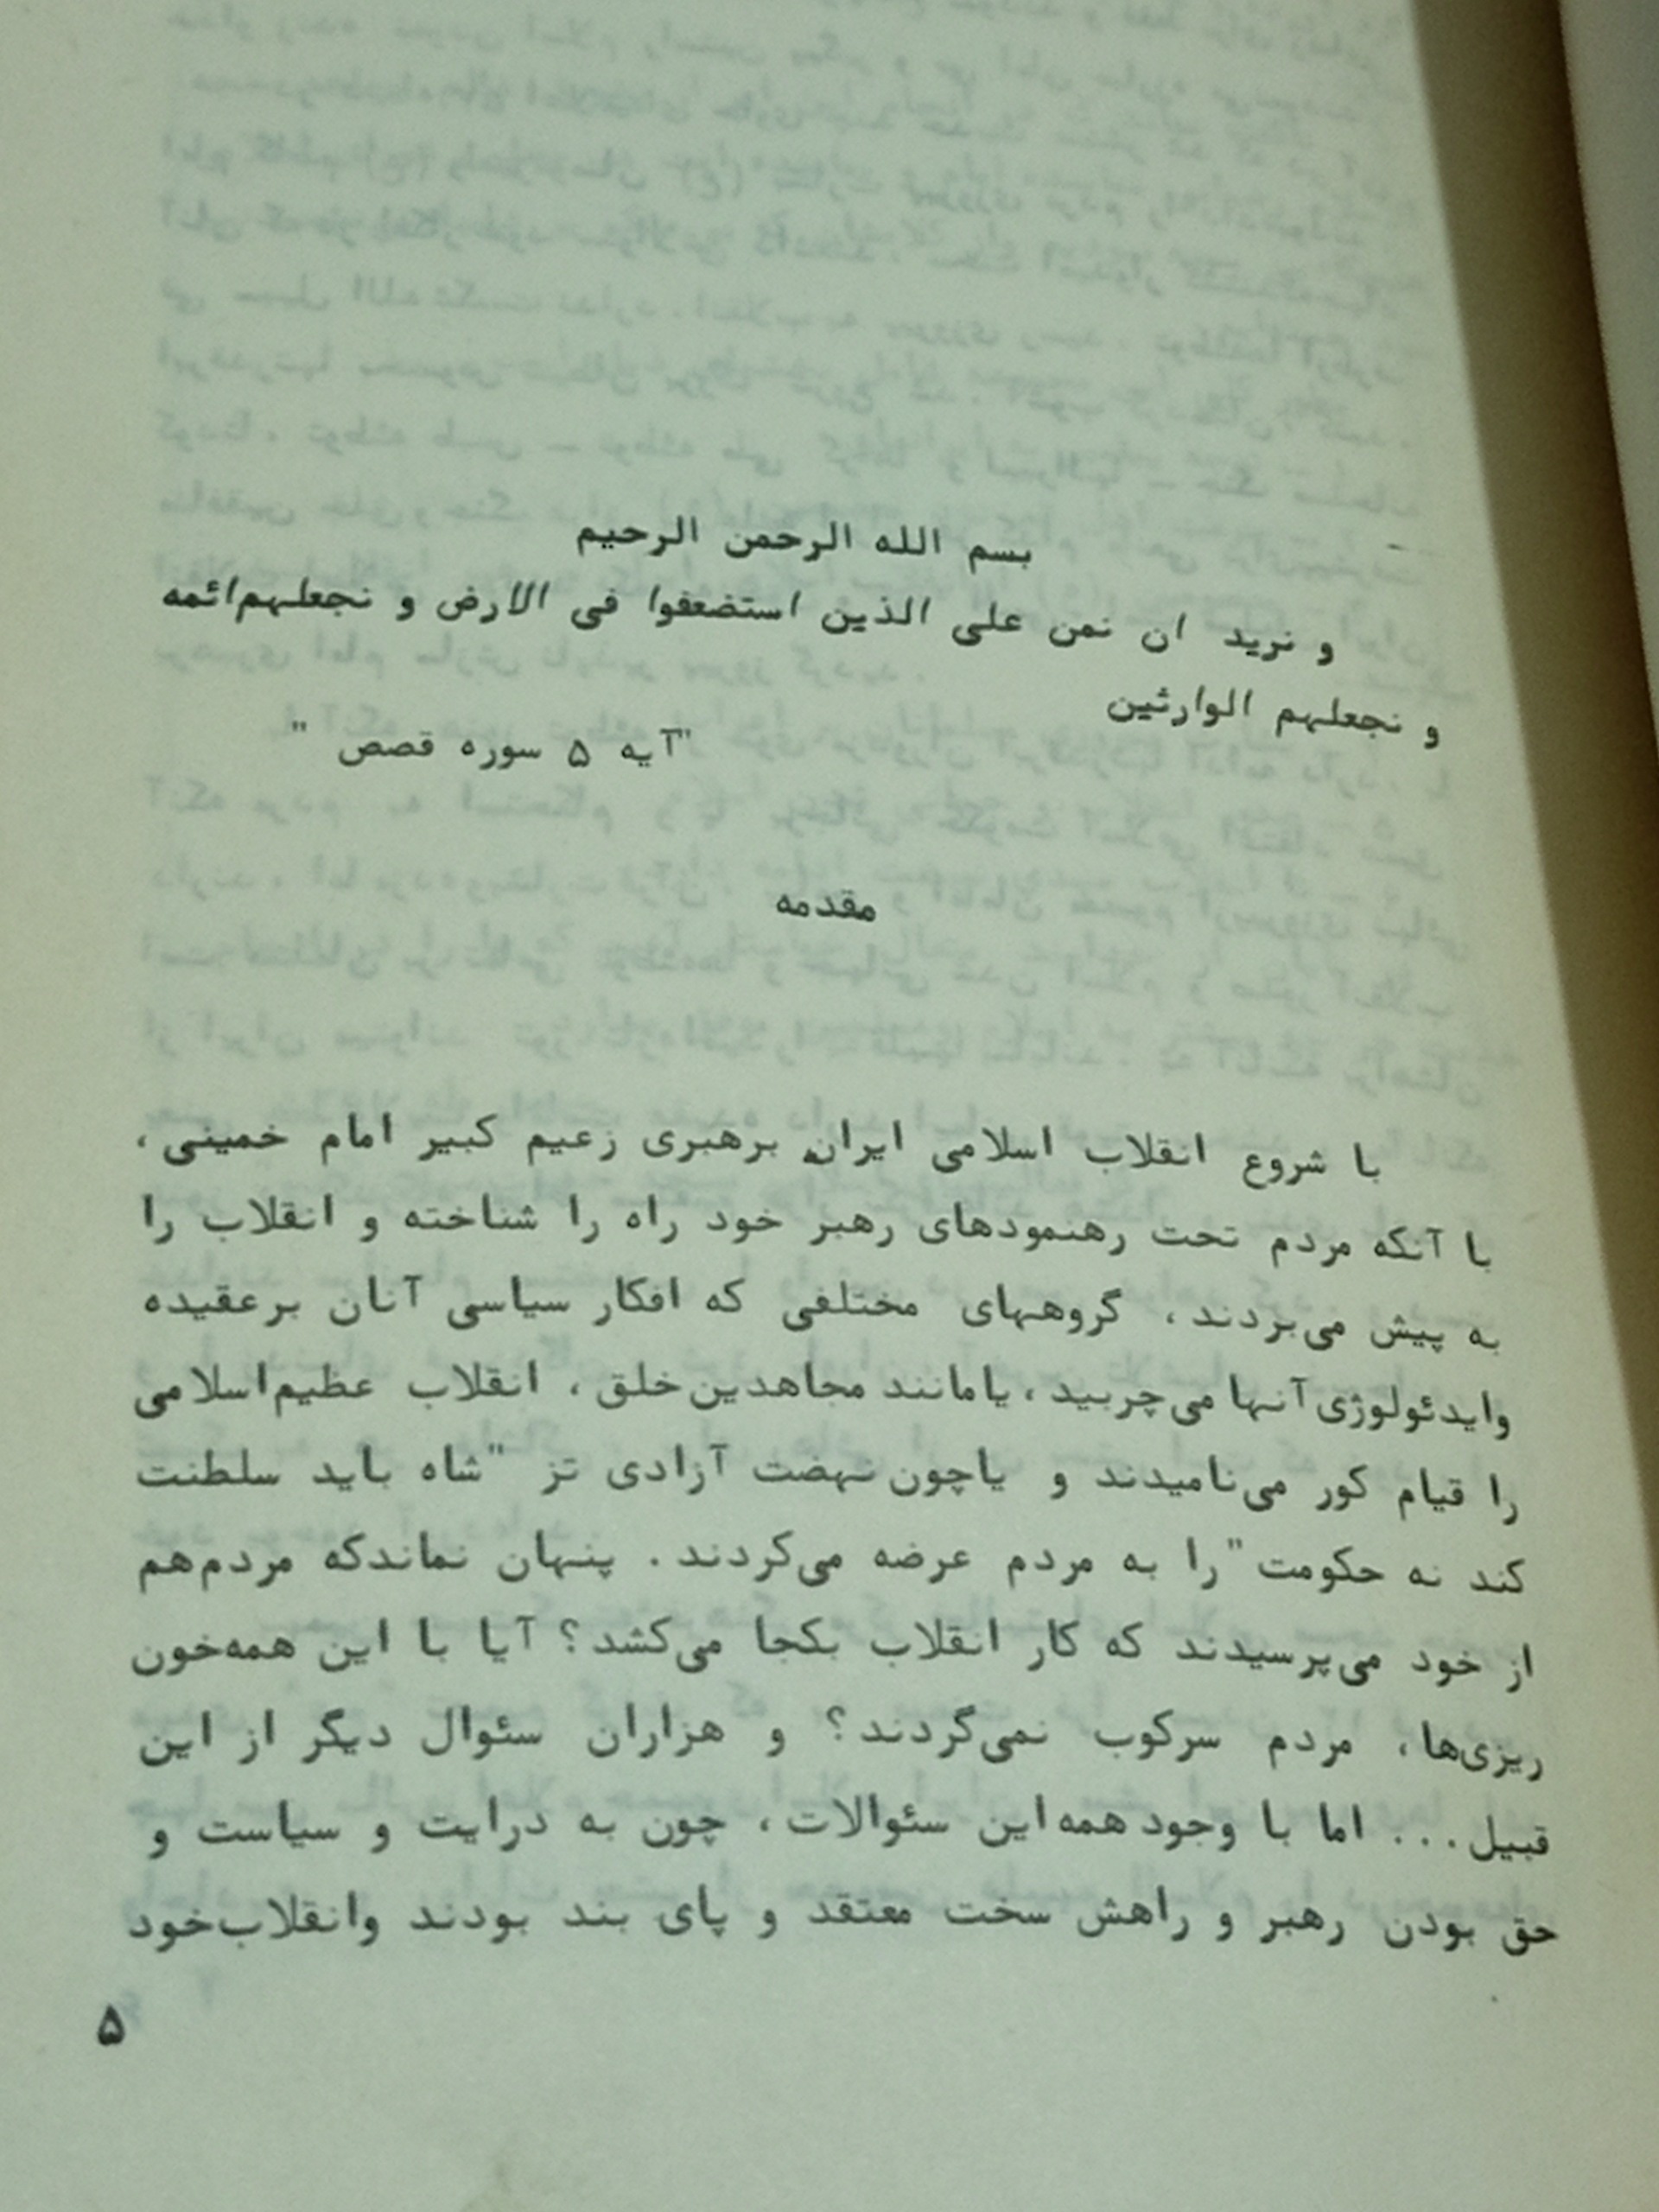 بسم الله الرحمن الرحیم
و نرید ان نمن علی الذین استضعفوا فی الارض و نجعلهم‌ائمه
و نجعلهم الوارثین
"آیه ۵ سوره قصص "
مقدمه
با شروع انقلاب اسلامی ایران برهبری زعیم کبیر امام خمینی،
با آنکه مردم تحت رهنمودهای رهبر خود راه را شناخته و انقلاب را
به پیش می‌بردند، گروههای مختلفی که افکار سیاسی آنان برعقیده
وایدئولوژی آنها می‌چربید، یامانند مجاهدین خلق، انقلاب عظیم‌اسلامی
را قیام کور می‌نامیدند و یاچون نهضت آزادی تز "شاه باید سلطنت
کند نه حکومت" را به مردم عرضه می‌کردند. پنهان نماندکه مردم‌هم
از خود می‌پرسیدند که کار انقلاب بکجا می‌کشد؟ آیا با این همه‌خون
ریزی‌ها، مردم سرکوب نمی‌گردند؟ و هزاران سئوال دیگر از این
قبیل... اما با وجود همه این سئوالات، چون به درایت و سیاست و
حق بودن رهبر و راهش سخت معتقد و پای بند بودند وانقلاب‌خود
۵